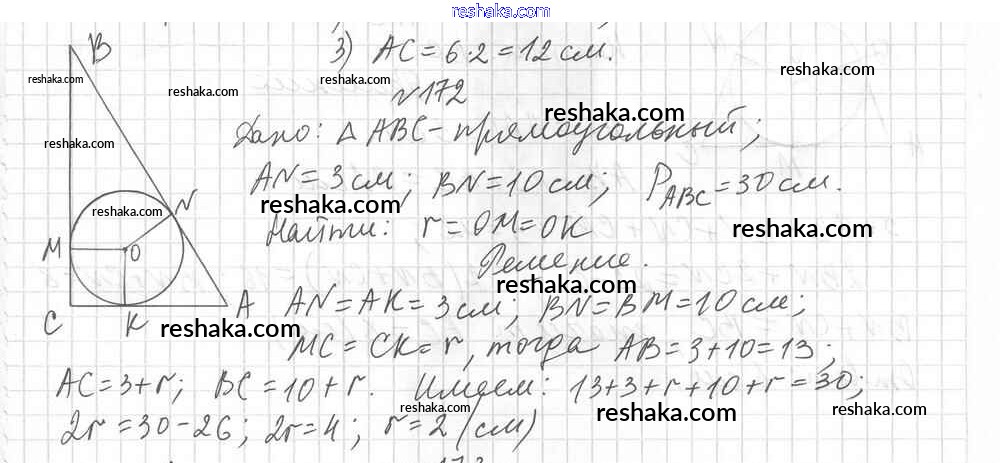 reshaka.com
3) AC = 6·2 = 12 см.
B
reshaka.com
reshaka.com
reshaka.com
№172
reshaka.com
Дано: △ ABC - прямоугольный;
reshaka.com
AN = 3 см; BN = 10 см; P_ABC = 30 см.
reshaka.com
reshaka.com
N
Найти: r = OM = OK
reshaka.com
M
O
Решение.
reshaka.com
C
K
A
AN = AK = 3 см; BN = BM = 10 см;
reshaka.com
reshaka.com
MC = CK = r, тогда AB = 3 + 10 = 13;
AC = 3 + r; BC = 10 + r. Имеем: 13 + 3 + r + 10 + r = 30;
reshaka.com
reshaka.com
reshaka.com
2r = 30 - 26; 2r = 4; r = 2 (см)